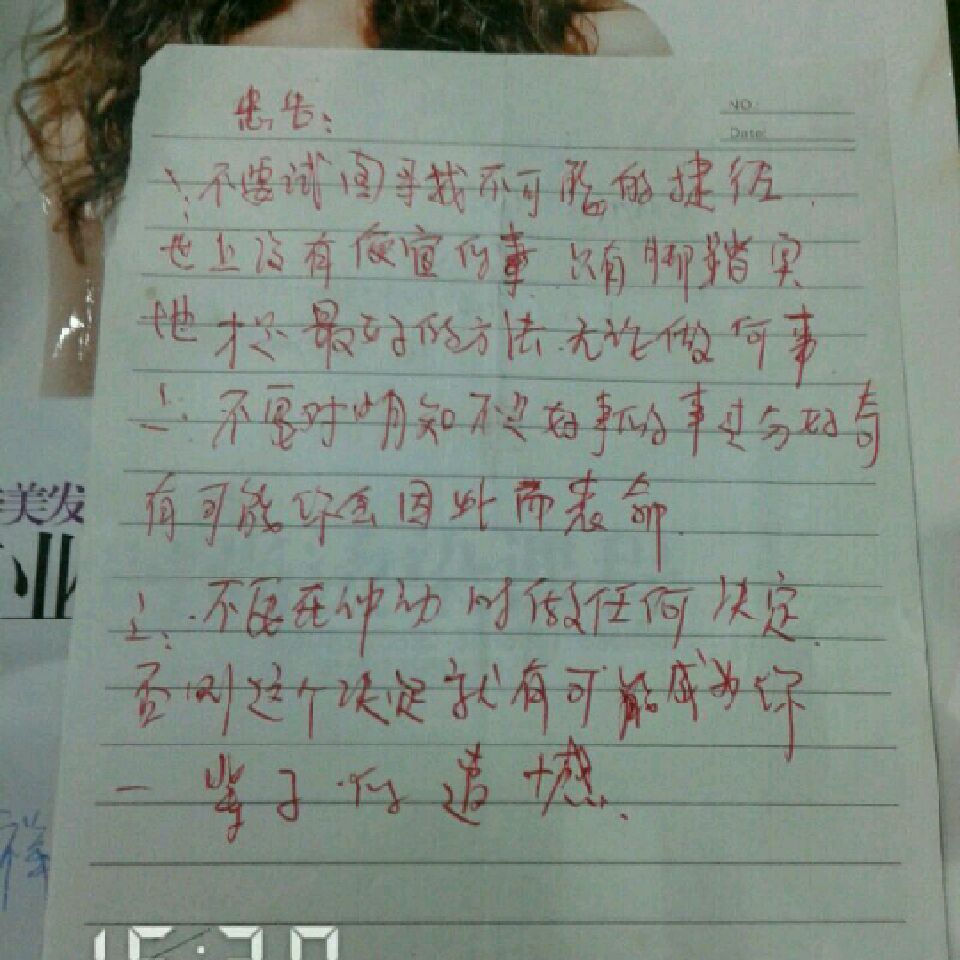 忠告:
NO.:
Date:
1、不要试图寻找不可能的捷径.
世上没有便宜的事 只有脚踏实
地 才是最好的方法.无论做何事
二、不要对明知不是好事的事过分好奇
有可能你会因此而丧命
三、不要在冲动时做任何决定.
否则这个决定就有可能成为你
一辈子的遗憾.
美发
业
祥
15:30